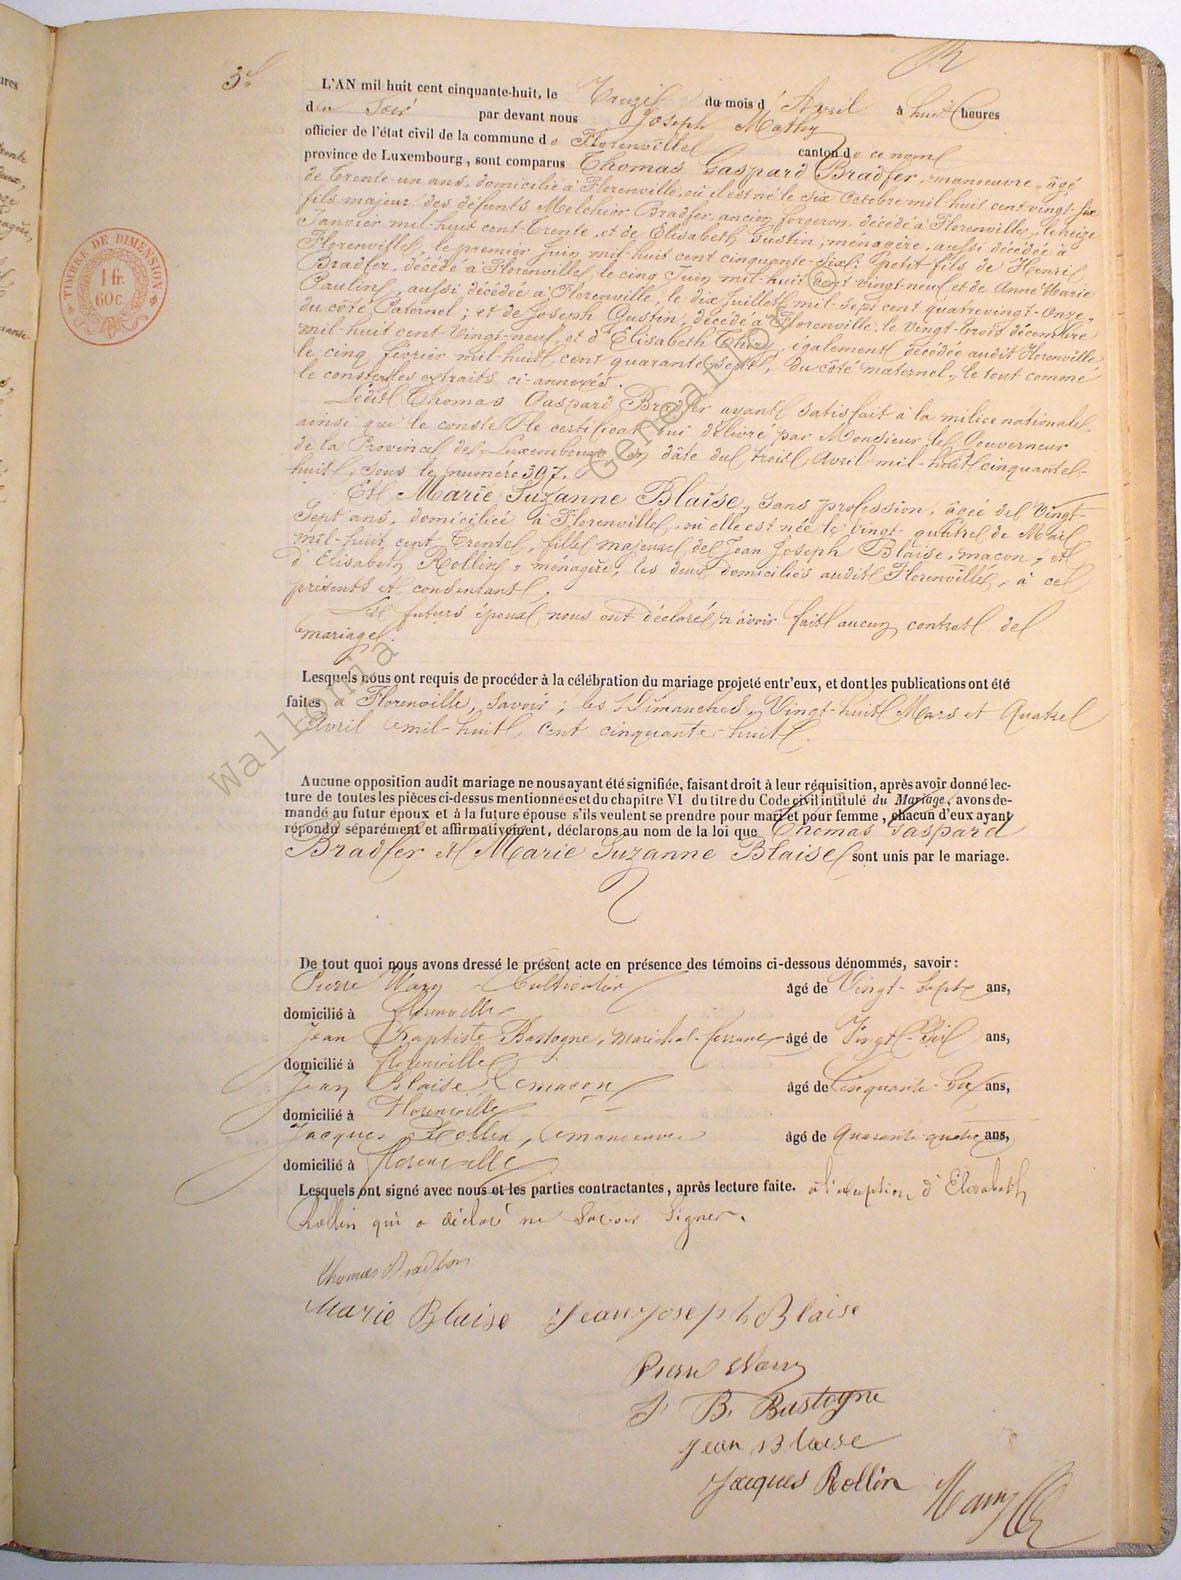 L'AN mil huit cent cinquante-huit, le Treize du mois d'Avril à huit heures
du Soir par devant nous Joseph Mathy
officier de l'état civil de la commune de Florenville canton de ce nom
province de Luxembourg, sont comparus Thomas Gaspard Bradfer, manoeuvre, âgé
de Trente-un ans, domicilié à Florenville, où il est né le six Octobre mil-huit cent vingt-six
fils majeur des défunts Melchior Bradfer, ancien forgeron décédé à Florenville, le treize
Janvier mil-huit cent-Trente, et de Elisabeth Gustin, ménagère, aussi décédée à
Florenville, le premier Juin mil-huit cent cinquante-six; petit-fils de Henri
Bradfer, décédé à Florenville le cinq Juin mil-huit cent vingt-neuf et de Anne Marie
Pauline, aussi décédée à Florenville, le dix Juillet mil-sept cent quatrevingt-onze,
du côté Paternel; et de Joseph Gustin, décédé à Florenville, le vingt-trois décembre
mil-huit cent-Vingt-neuf, et d'Elisabeth Thiry, également décédée audit Florenville
le cinq février mil-huit cent quarante-sept, du côté maternel, le tout comme
le constent les extraits ci-annexés.
Ledit Thomas Gaspard Bradfer ayant satisfait à la milice nationale
ainsi que le conste le certificat lui délivré par Monsieur le Gouverneur
de la Province de Luxembourg en dâte du trois Avril mil-huit cinquante-
huit, sous le numéro 307.
Et Marie Suzanne Blaise, sans profession, âgée de Vingt-
Sept ans, domiciliée à Florenville, où elle est née le vingt-quatre de Mai
mil-huit cent Trente, fille majeure de Jean Joseph Blaise, maçon, et
d'Elisabeth Rollin, ménagère, les deux domiciliés audit Florenville, à ce
présents et consentant.
Les futurs époux nous ont déclaré n'avoir fait aucun contrat de
mariage.
Lesquels nous ont requis de procéder à la célébration du mariage projeté entr'eux, et dont les publications ont été
faites à Florenville, Savoir; les Dimanches, Vingt-huit Mars et Quatre
Avril mil-huit cent cinquante-huit.
Aucune opposition audit mariage ne nous ayant été signifiée, faisant droit à leur réquisition, après avoir donné lec-
ture de toutes les pièces ci-dessus mentionnées et du chapitre VI du titre du Code civil intitulé du Mariage, avons de-
mandé au futur époux et à la future épouse s'ils veulent se prendre pour mari et pour femme, chacun d'eux ayant
répondu séparément et affirmativement, déclarons au nom de la loi que Thomas Gaspard
Bradfer et Marie Suzanne Blaise sont unis par le mariage.
De tout quoi nous avons dressé le présent acte en présence des témoins ci-dessous dénommés, savoir:
Pierre Wary Cultivateur âgé de Vingt-Sept ans,
domicilié à Florenville
Jean Baptiste Bastogne, maréchal-ferrant âgé de Vingt-Six ans,
domicilié à Florenville
Jean Blaise maçon âgé de Cinquante-Six ans,
domicilié à Florenville
Jacques Rollin, manoeuvre âgé de Quarante-quatre ans,
domicilié à Florenville
Lesquels ont signé avec nous et les parties contractantes, après lecture faite. à l'exception d'Elisabeth
Rollin qui a déclaré ne Savoir Signer.
Thomas Bradfer
Marie Blaise Jean joseph Blaise
Pierre Wary
J B. Bastogne
Jean Blaise
Jacques Rollin
TIMBRE DE DIMENSION
1 fr.
60 c.
Wallonia Genealogy